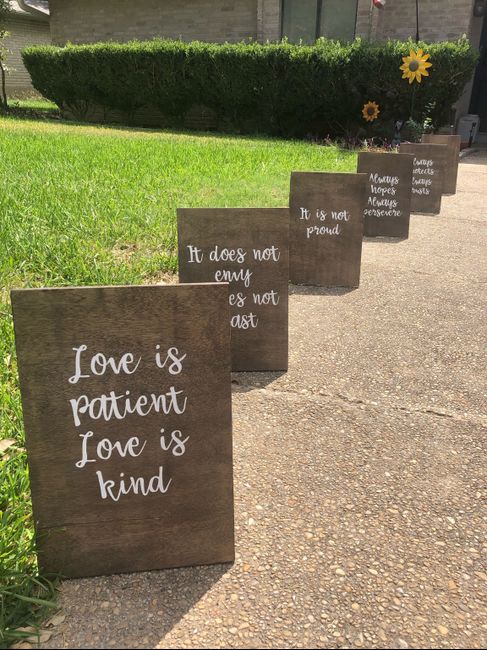 Love is
patient
Love is
kind
It does not
envy
not
It is not
proud
Always
hopes
Always
persevere
Always